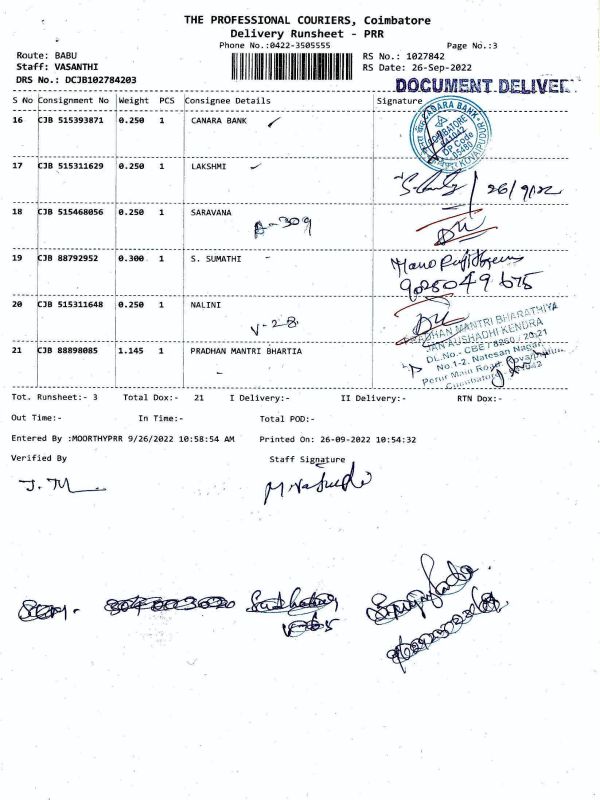 THE PROFESSIONAL COURIERS, Coimbatore
Delivery Runsheet - PRR
Phone No.:0422-3505555 Page No.:3
Route: BABU RS No.: 1027842
Staff: VASANTHI RS Date: 26-Sep-2022
DRS No.: DCJB102784203
DOCUMENT DELIVE
S No Consignment No Weight PCS Consignee Details Signature
16 CJB 515393871 0.250 1 CANARA BANK
CANARA BANK
COIMBATORE
641042
DP Code
17 CJB 515311629 0.250 1 LAKSHMI
26/9/22
18 CJB 515468056 0.250 1 SARAVANA
A-309
19 CJB 88792952 0.300 1 S. SUMATHI
20 CJB 515311648 0.250 1 NALINI
V-28
21 CJB 88898085 1.145 1 PRADHAN MANTRI BHARTIA
PRADHAN MANTRI BHARATHIYA
JAN AUSHADHI KENDRA
DL.No.- CBE
No.1-2, Natesan Nagar,
Perur Main Road,
Coimbatore
Tot. Runsheet:- 3 Total Dox:- 21 I Delivery:- II Delivery:- RTN Dox:-
Out Time:- In Time:- Total POD:-
Entered By :MOORTHYPRR 9/26/2022 10:58:54 AM Printed On: 26-09-2022 10:54:32
Verified By Staff Signature